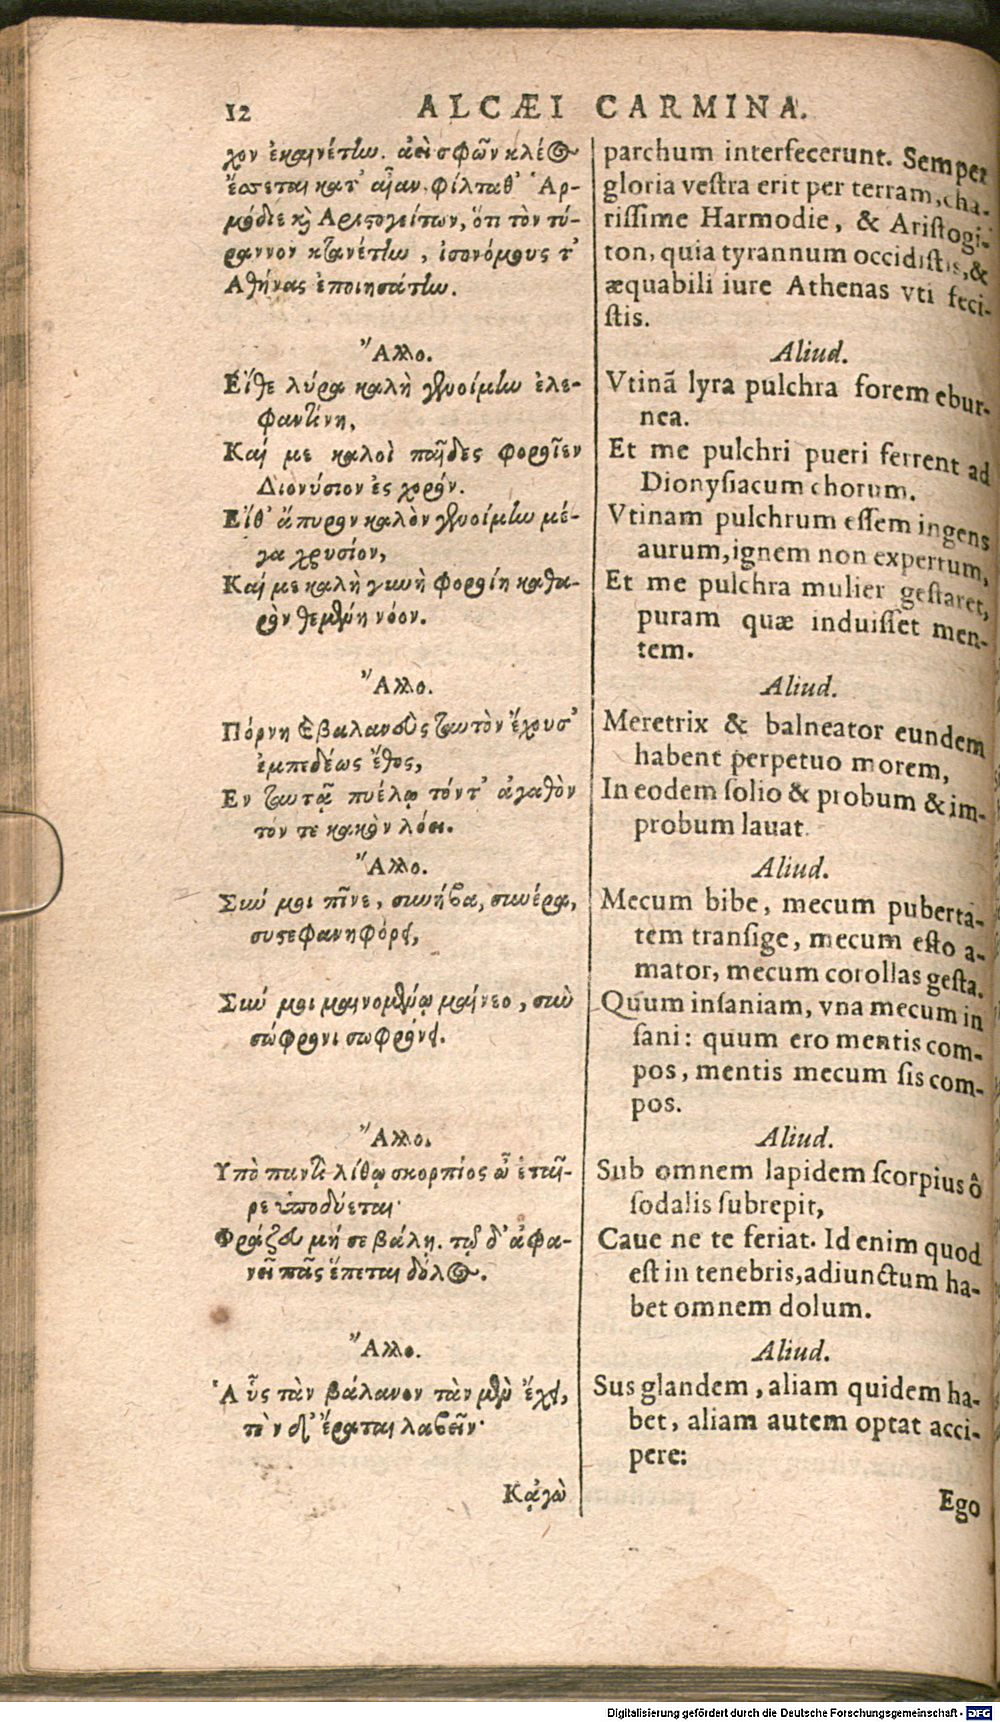 12 ALCÆI CARMINA.
χον ἐκαινέτην. ἀεὶ σφῶν κλέος
ἔσσεται κατ' αἶαν, φίλταθ' Ἁρ-
μόδιε καὶ Αριστογείτων, ὅτι τὸν τύ-
ραννον κτανέτην, ἰσονόμους τ'
Αθήνας ἐποιησάτην.
Ἄλλο.
Είθε λύρα καλὴ γενοίμην ἐλε-
φαντίνη,
Καί με καλοὶ παῖδες φοροῖεν
Διονύσιον ἐς χορόν.
Είθ' ἄπυρον καλὸν γενοίμην μέ-
γα χρυσίον,
Καί με καλὴ γυνὴ φοροίη καθα-
ρὸν θεμένη νόον.
Ἄλλο.
Πόρνη καὶ βαλανεὺς τωυτὸν ἔχουσ'
ἐμπεδέως ἔθος,
Εν τωυτᾷ πυέλῳ τόντ' ἀγαθὸν
τόν τε κακὸν λόει.
Ἄλλο.
Σύν μοι πῖνε, συνήβα, συνέρα,
συστεφανηφόρει,
Σύν μοι μαινομένῳ μαίνεο, σὺν
σώφρονι σωφρόνει.
Ἄλλο.
Υπὸ παντὶ λίθῳ σκορπίος ὦ ἑταῖ-
ρε ὑποδύεται·
Φράζευ μή σε βάλῃ. τῷ δ' ἀφα-
νεῖ πᾶς ἕπεται δόλος.
Ἄλλο.
Ἁ ὗς τὰν βάλανον τὰν μὲν ἔχει,
τὴν δ' ἔραται λαβεῖν·
Κᾀγὼ
parchum interfecerunt. Semper
gloria vestra erit per terram, cha-
rissime Harmodie, & Aristogi-
ton, quia tyrannum occidistis, &
æquabili iure Athenas vti feci-
stis.
Aliud.
Vtinã lyra pulchra forem ebur-
nea.
Et me pulchri pueri ferrent ad
Dionysiacum chorum.
Vtinam pulchrum essem ingens
aurum, ignem non expertum,
Et me pulchra mulier gestaret,
puram quæ induisset men-
tem.
Aliud.
Meretrix & balneator eundem
habent perpetuo morem,
In eodem solio & probum & im-
probum lauat.
Aliud.
Mecum bibe, mecum puberta-
tem transige, mecum esto a-
mator, mecum corollas gesta.
Quum insaniam, vna mecum in
sani: quum ero mentis com-
pos, mentis mecum sis com-
pos.
Aliud.
Sub omnem lapidem scorpius ô
sodalis subrepit,
Caue ne te feriat. Id enim quod
est in tenebris, adiunctum ha-
bet omnem dolum.
Aliud.
Sus glandem, aliam quidem ha-
bet, aliam autem optat acci-
pere:
Ego
Digitalisierung gefördert durch die Deutsche Forschungsgemeinschaft - DFG